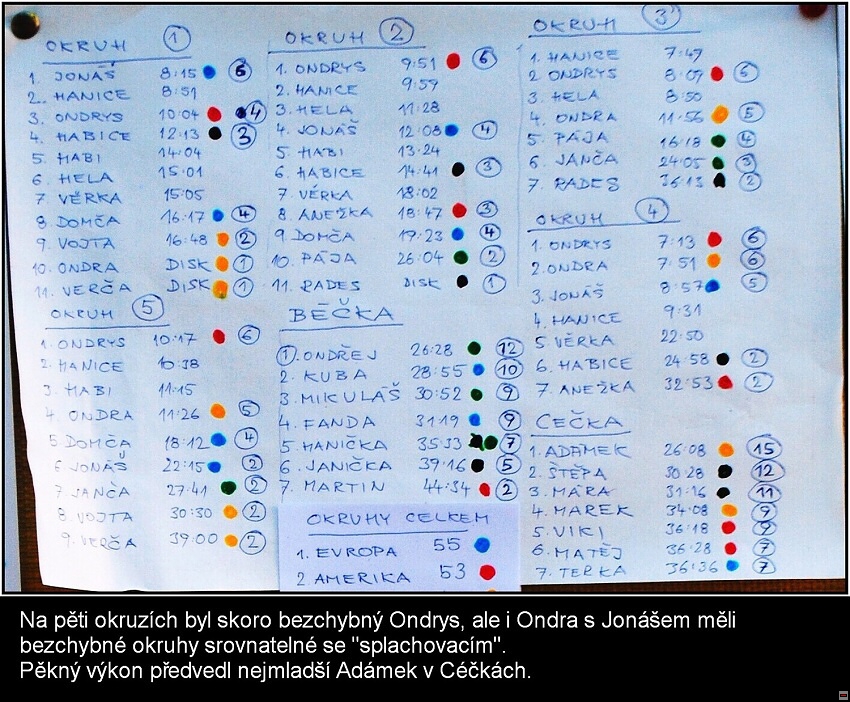 OKRUH 1
1. JONÁŠ 8:15 6
2. HANICE 8:51
3. ONDRYS 10:04 4
4. HABICE 12:13 3
5. HABI 14:04
6. HELA 15:01
7 VĚRKA 15:05
8 DOMČA 16:17 4
9. VOJTA 16:48 2
10. ONDRA DISK 1
11. VERČA DISK 1
OKRUH 2
1. ONDRYS 9:51 6
2. HANICE 9:59
3. HELA 11:28
4. JONÁŠ 12:08 4
5. HABI 13:24
6. HABICE 14:41 3
7 VĚRKA 18:02
8. ANEŽKA 18:47 3
9. DOMČA 19:23 4
10. PÁJA 26:04 2
11. RADES DISK 1
OKRUH 3
1. HANICE 7:47
2 ONDRYS 8:07 6
3. HELA 8:50
4. ONDRA 11:56 5
5. PÁJA 16:18 4
6. JANČA 24:05 3
7. RADES 36:13 2
OKRUH 4
1. ONDRYS 7:13 6
2. ONDRA 7:51 6
3. JONÁŠ 8:57 5
4. HANICE 9:31
5. VĚRKA 22:50
6. HABICE 24:58 2
7. ANEŽKA 32:53 2
OKRUH 5
1. ONDRYS 10:17 6
2. HANICE 10:38
3. HABI 11:15
4. ONDRA 11:26 5
5 DOMČA 18:12 4
6 JONÁŠ 22:15 2
7 JANČA 27:41 2
8. VOJTA 30:30 2
9. VERČA 39:00 2
BÉČKA
1. ONDŘEJ 26:28 12
2. KUBA 28:55 10
3. MIKULÁŠ 30:52 9
4. FANDA 31:19 9
5. HANIČKA 35:33 7
6. JANIČKA 39:16 5
7. MARTIN 44:34 2
CÉČKA
1. ADÁMEK 26:08 15
2. ŠTĚPA 30:28 12
3. MÁRA 31:16 11
4. MAREK 34:08 9
5. VIKI 36:18 9
6. MATĚJ 36:28 7
7. TERKA 36:36 7
OKRUHY CELKEM
1. EVROPA 55
2 AMERIKA 53
Na pěti okruzích byl skoro bezchybný Ondrys, ale i Ondra s Jonášem měli
bezchybné okruhy srovnatelné se "splachovacím".
Pěkný výkon předvedl nejmladší Adámek v Céčkách.